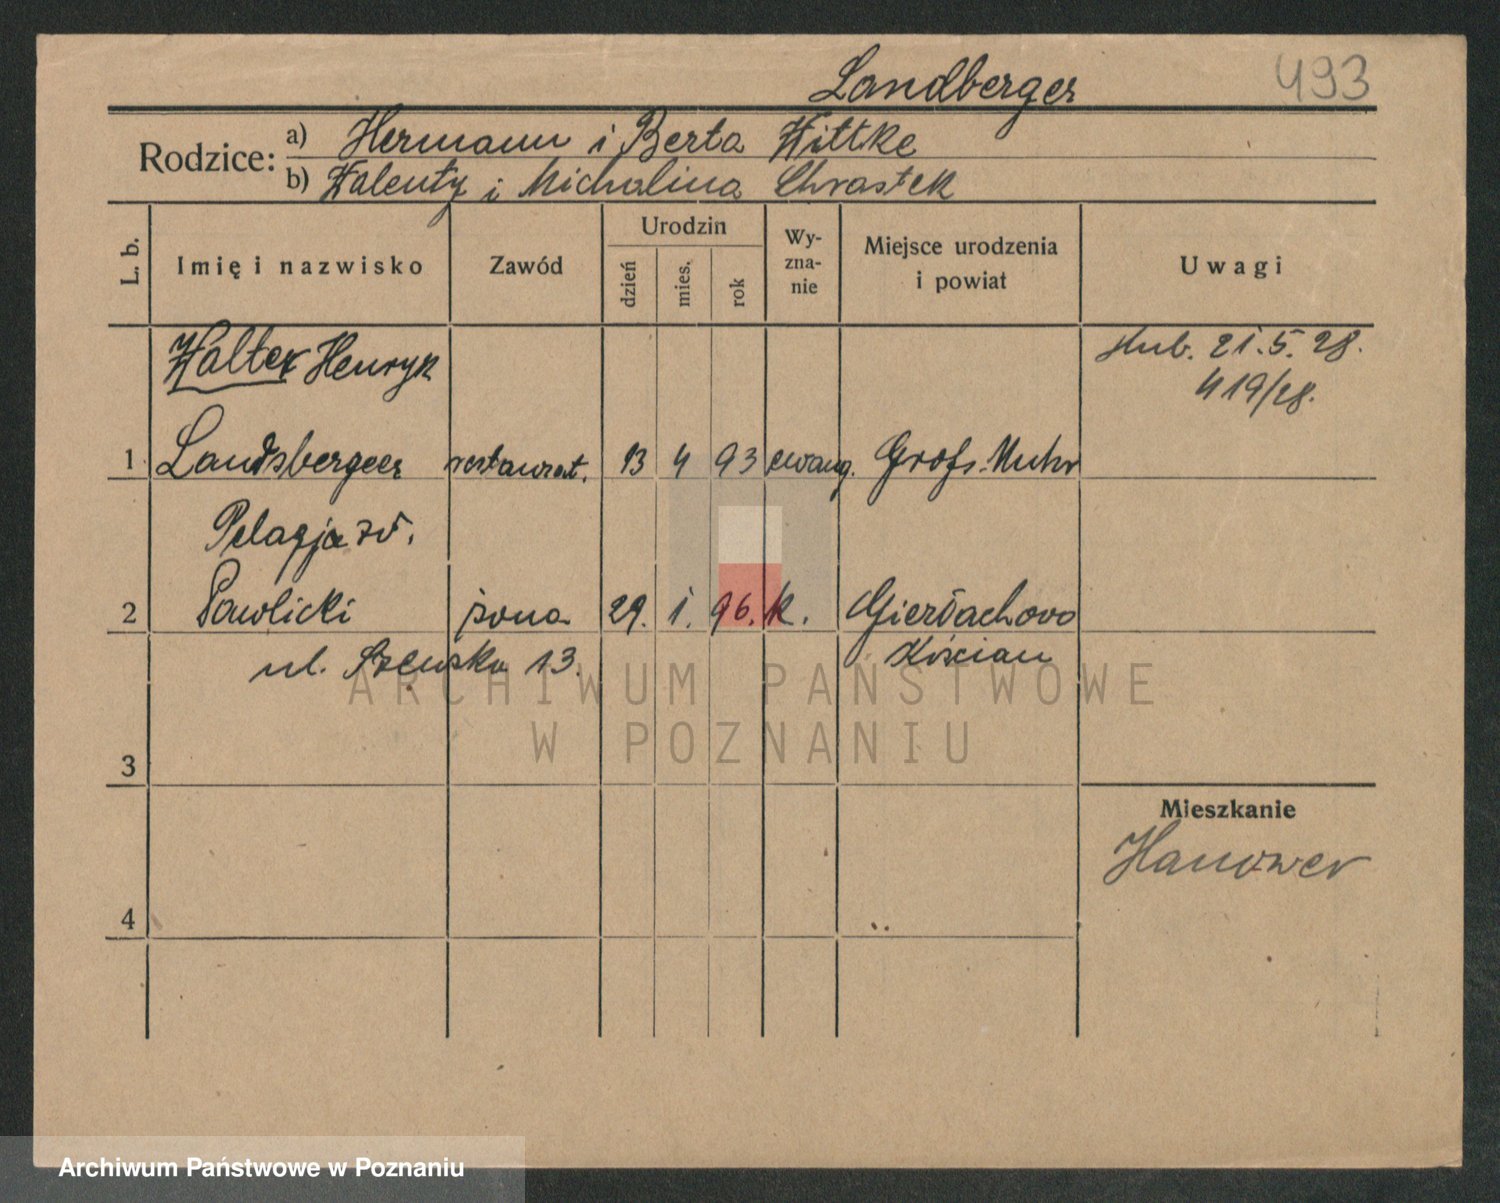 Landberger 493
Rodzice: a) Hermann i Berta Wittke
b) Walenty i Michalina Chrastek
L. b. Imię i nazwisko Zawód Urodzin dzień mies. rok Wy-zna-nie Miejsce urodzenia i powiat Uwagi
Walter Henryk
ślub. 21.5.28.
419/28.
1 Landsberger restaurat. 13 4 93 ewang. Grofs. Muhr
Pelagja
2 Pawlicki żona 29. 1. 96. k. Gierłachovo
ul. 13. Kościan
ARCHIWUM PAŃSTWOWE
W POZNANIU
3
Mieszkanie
Hanower
4
Archiwum Państwowe w Poznaniu